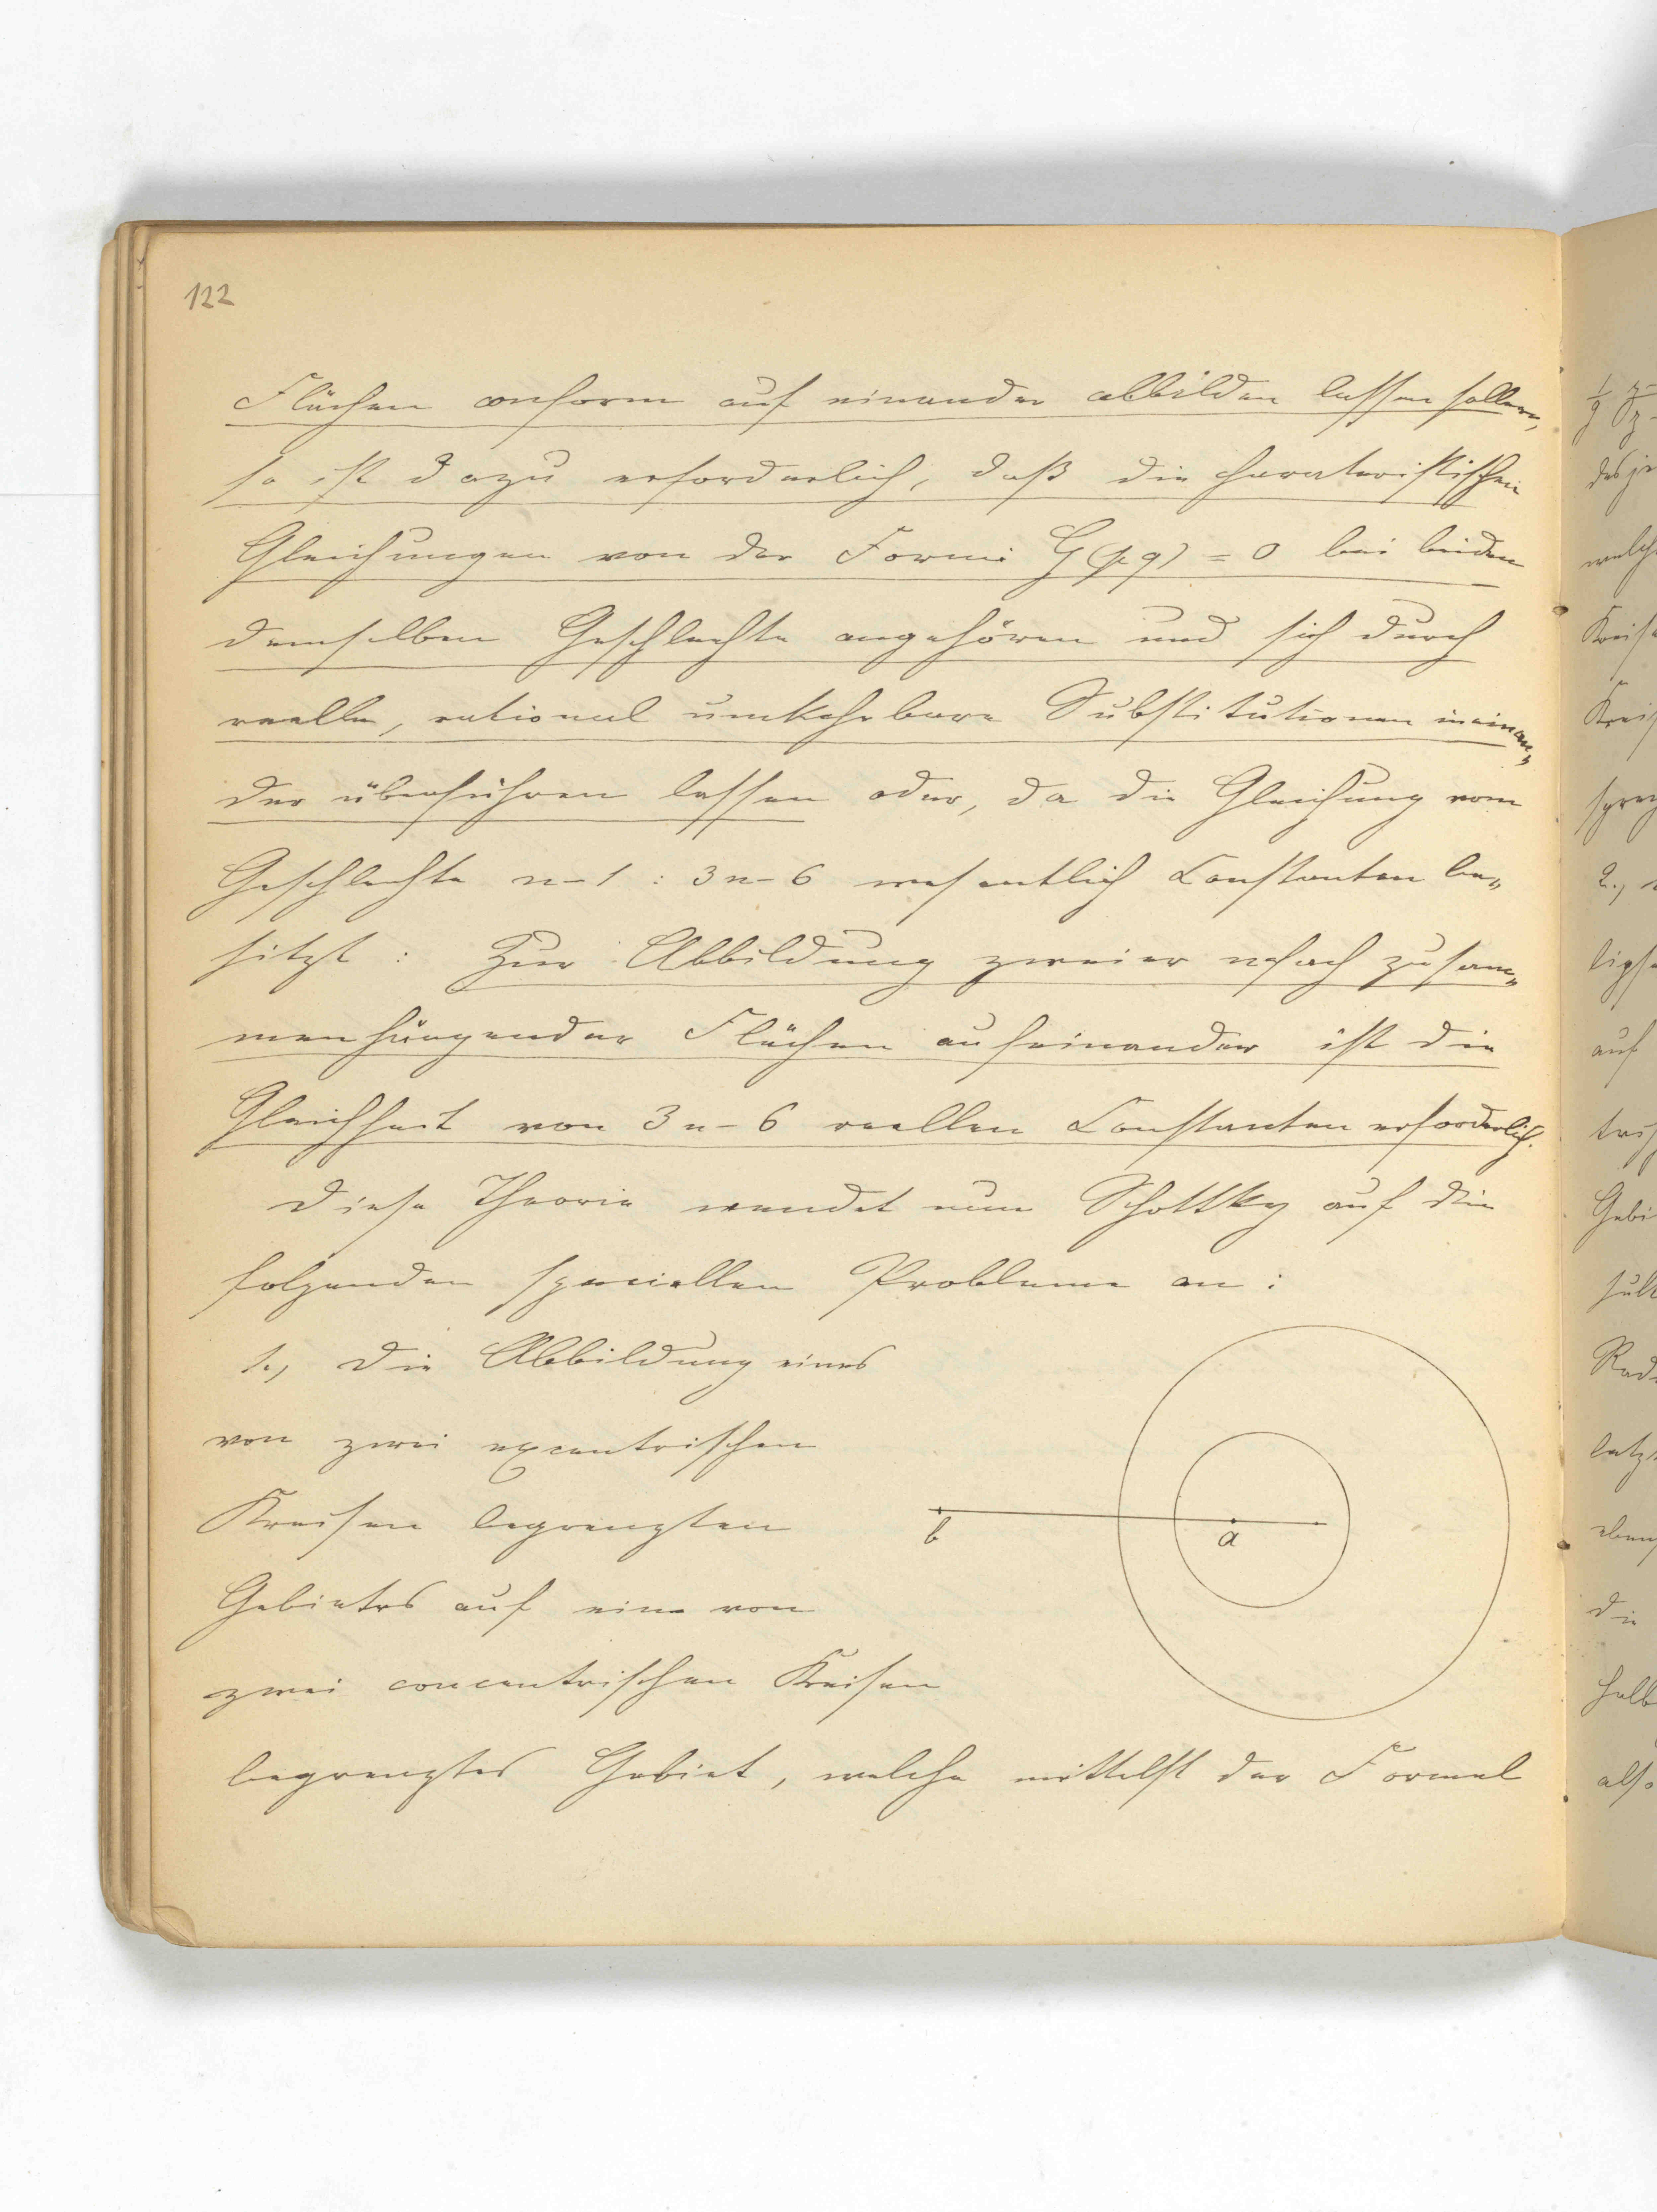 122
Flächen conform auf einander abbilden lassen sollen,
so ist dazu erforderlich, daß die charateristischen
Gleichungen von der Form G(pq) = 0 bei beiden
demselben Geschlechte angehören und sich durch
reelle, rational umkehrbare Substitutionen ineinan„
der überführen lassen oder, da die Gleichung vom
Geschlechte n-1 : 3n-6 wesentlich Constanten be„
sitzt : Zur Abbildung zweier nfach zusam„
menhängender Flächen aufeinander ist die
Gleichheit von 3n-6 reellen Constanten erforderlich.
Diese Theorie wendet nun Schottky auf die
folgenden speciellen Probleme an :
1., Die Abbildung eines
von zwei excentrischen
Kreisen begrenzten
b
a
Gebietes auf ein von
zwei concentrischen Kreisen
begrenztes Gebiet, welche mittelst der Formel
des
welch
Kreise
Kreis
2.,
auf
Gebi
Rad
die
halb
also